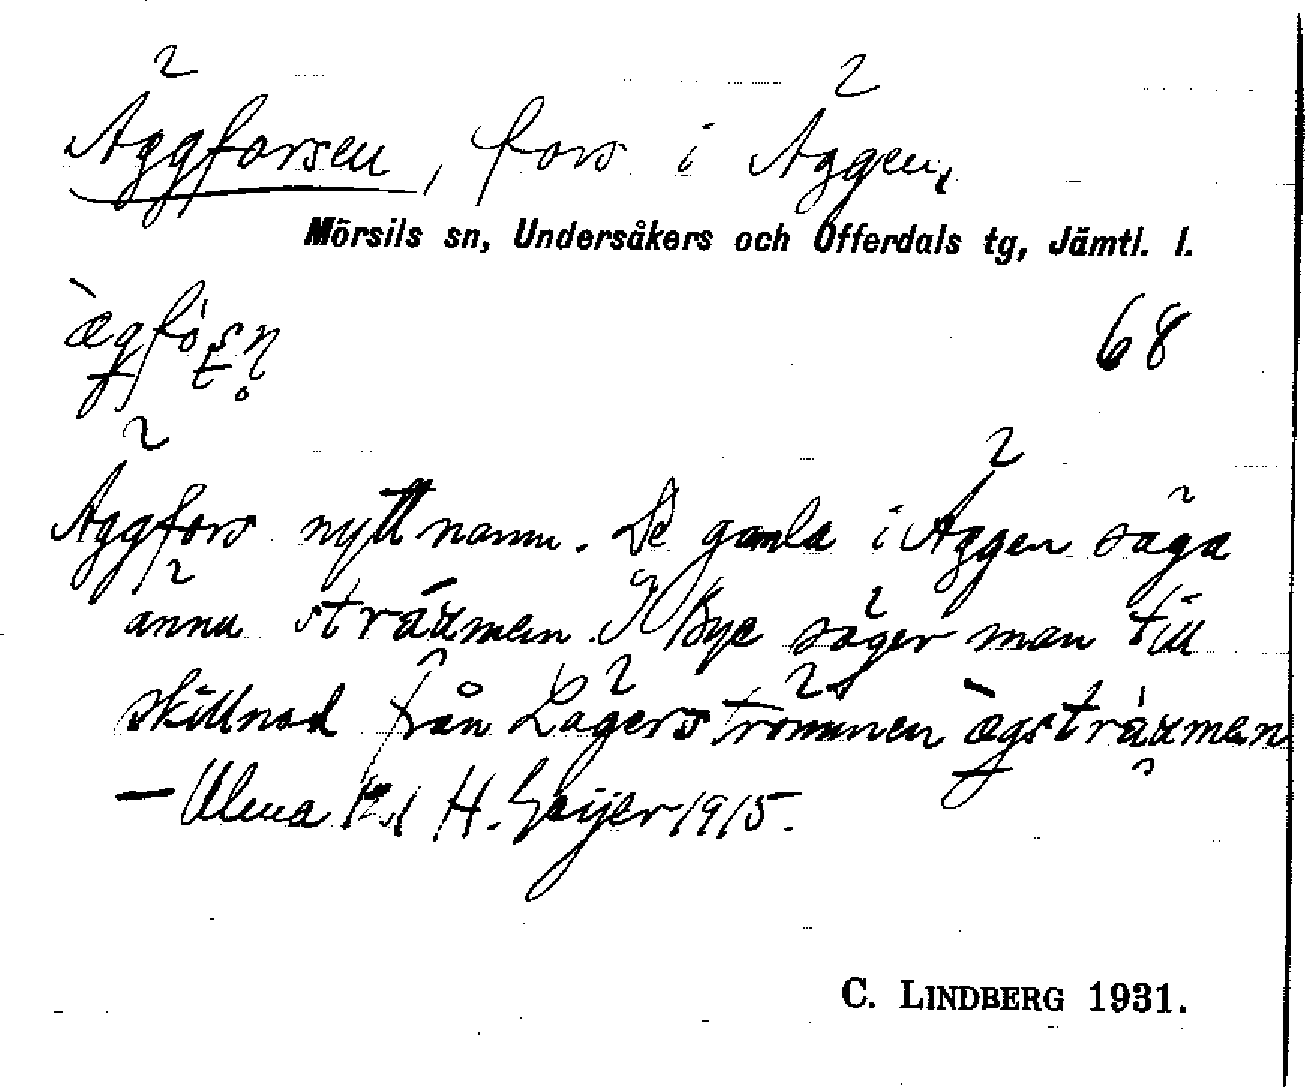 Äggforsen, fors i Äggen,
Mörsils sn, Undersåkers och Offerdals tg, Jämtl. l.
68
Äggfors nytt namn. De gamla i Äggen säga
ännu stráumen. I Bye säger man till
skillnad från Lägerströmmen ægstráumen
— Ulma H. Geijer 1915.
C. LINDBERG 1931.